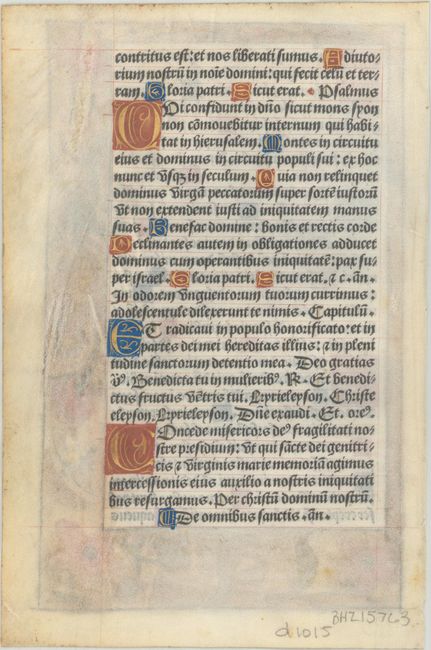 contritus est: et nos liberati sumus. Adiuto-
rium nostrū in noīe domini: qui fecit celū et ter-
ram. Gloria patri. Sicut erat. Psalmus
Qui confidunt in dño sicut mons syon
non cōmouebitur internum qui habi-
tat in hierusalem. Montes in circuitu
eius et dominus in circuitu populi sui: ex hoc
nunc et vsqꝫ in seculum. Quia non relinquet
dominus virgā peccatorum super sortē iustorū
vt non extendent iusti ad iniquitatem manus
suas. Benefac domine: bonis et rectis corde
Declinantes autem in obligationes adducet
dominus cum operantibus iniquitatē: pax su-
per israel. Gloria patri. Sicut erat. ⁊ c. añ.
In odorem vnguentorum tuorum currimus:
adolescentule dilexerunt te nimis. Capitulū.
ET radicaui in populo honorificato: et in
partes dei mei hereditas illius: ⁊ in pleni
tudine sanctorum detentio mea. Deo gratias
v̄s. Benedicta tu in mulieribꝰ. R. Et benedi-
ctus fructus vētris tui. Kyrieleyson. Christe
eleyson. Kyrieleyson. Dñe exaudi. Et. oreꝰ.
COncede misericors deꝰ fragilitati no-
stre presidium: vt qui sācte dei genitri-
cis ⁊ virginis marie memoriā agimus
intercessionis eius auxilio a nostris iniquitati
bus resurgamus. Per christū dominū nostrū.
De omnibus sanctis. añ.
BHZ15763
d1015